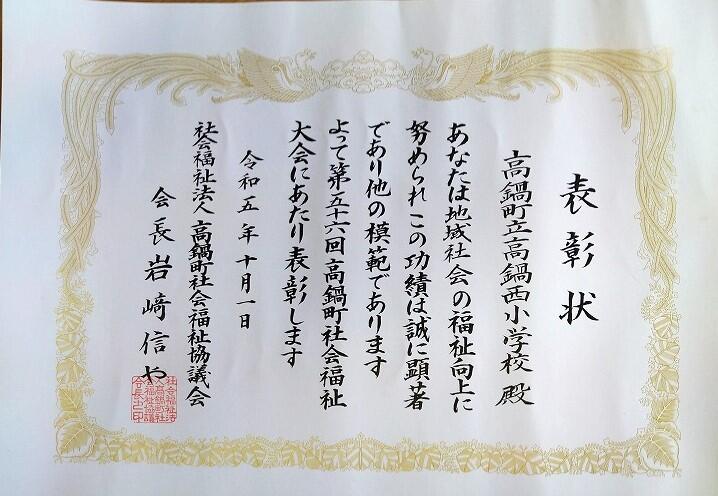 表彰状
高鍋町立高鍋西小学校 殿
あなたは地域社会の福祉向上に
努められこの功績は誠に顕著
であり他の模範であります
よって第五十六回高鍋町社会福祉
大会にあたり表彰します
令和五年十月一日
社会福祉法人 高鍋町社会福祉協議会
会長 岩﨑信や